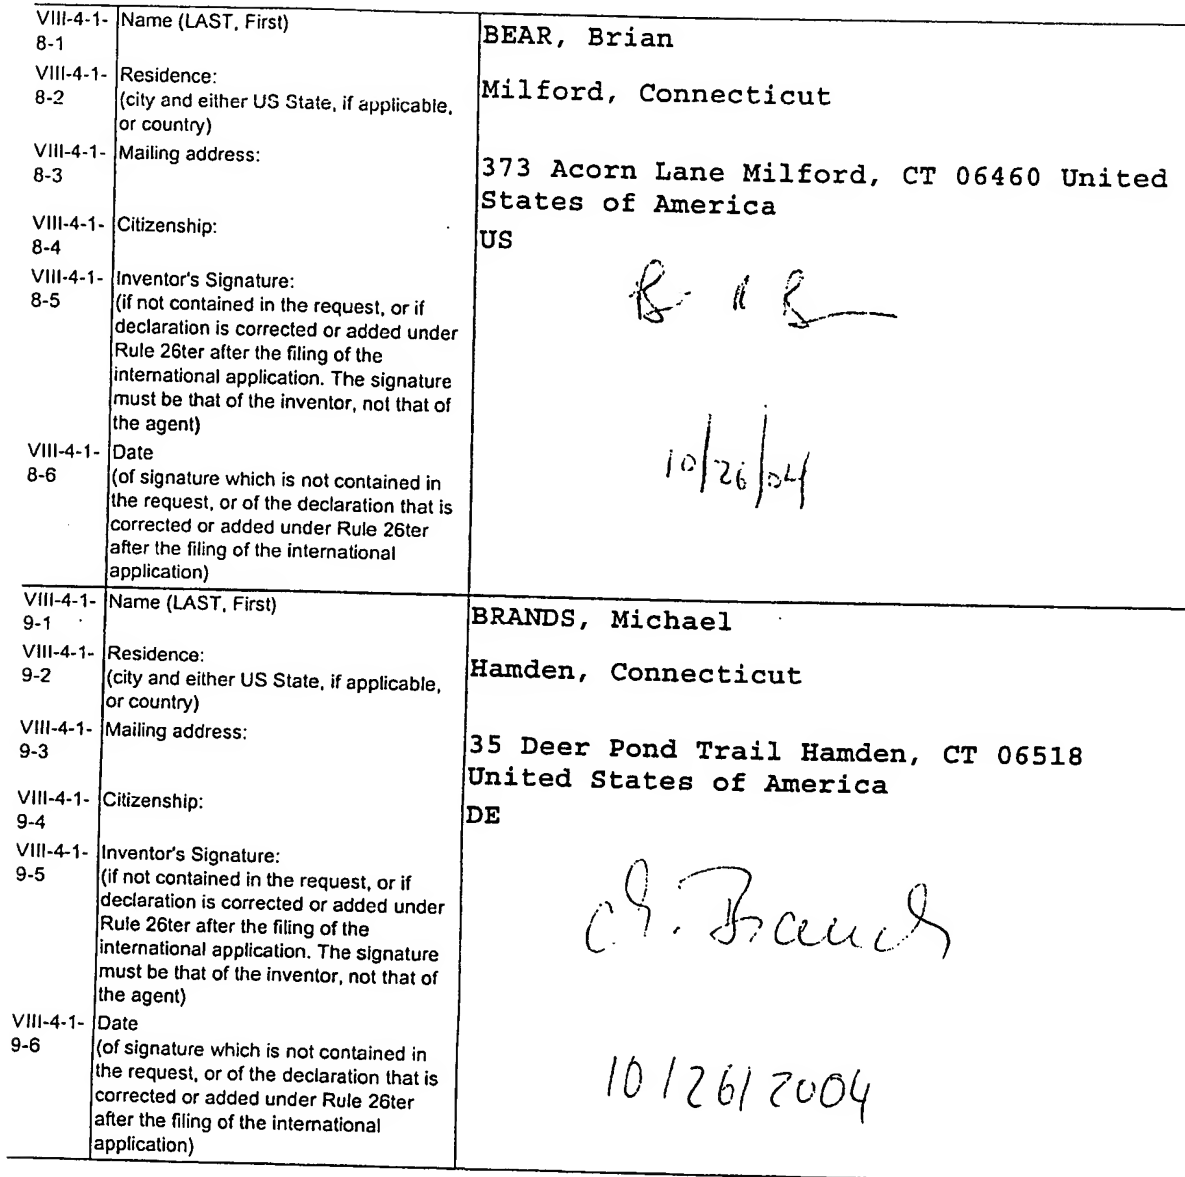 VIII-4-1- Name (LAST, First) BEAR, Brian
8-1
VIII-4-1- Residence: Milford, Connecticut
8-2 (city and either US State, if applicable,
or country)
VIII-4-1- Mailing address: 373 Acorn Lane Milford, CT 06460 United
8-3 States of America
VIII-4-1- Citizenship: US
8-4
VIII-4-1- Inventor's Signature:
8-5 (if not contained in the request, or if
declaration is corrected or added under
Rule 26ter after the filing of the
international application. The signature
must be that of the inventor, not that of
the agent)
VIII-4-1- Date 10/26/04
8-6 (of signature which is not contained in
the request, or of the declaration that is
corrected or added under Rule 26ter
after the filing of the international
application)
VIII-4-1- Name (LAST, First) BRANDS, Michael
9-1
VIII-4-1- Residence: Hamden, Connecticut
9-2 (city and either US State, if applicable,
or country)
VIII-4-1- Mailing address: 35 Deer Pond Trail Hamden, CT 06518
9-3 United States of America
VIII-4-1- Citizenship: DE
9-4
VIII-4-1- Inventor's Signature:
9-5 (if not contained in the request, or if
declaration is corrected or added under
Rule 26ter after the filing of the
international application. The signature
must be that of the inventor, not that of
the agent)
VIII-4-1- Date 10/26/2004
9-6 (of signature which is not contained in
the request, or of the declaration that is
corrected or added under Rule 26ter
after the filing of the international
application)